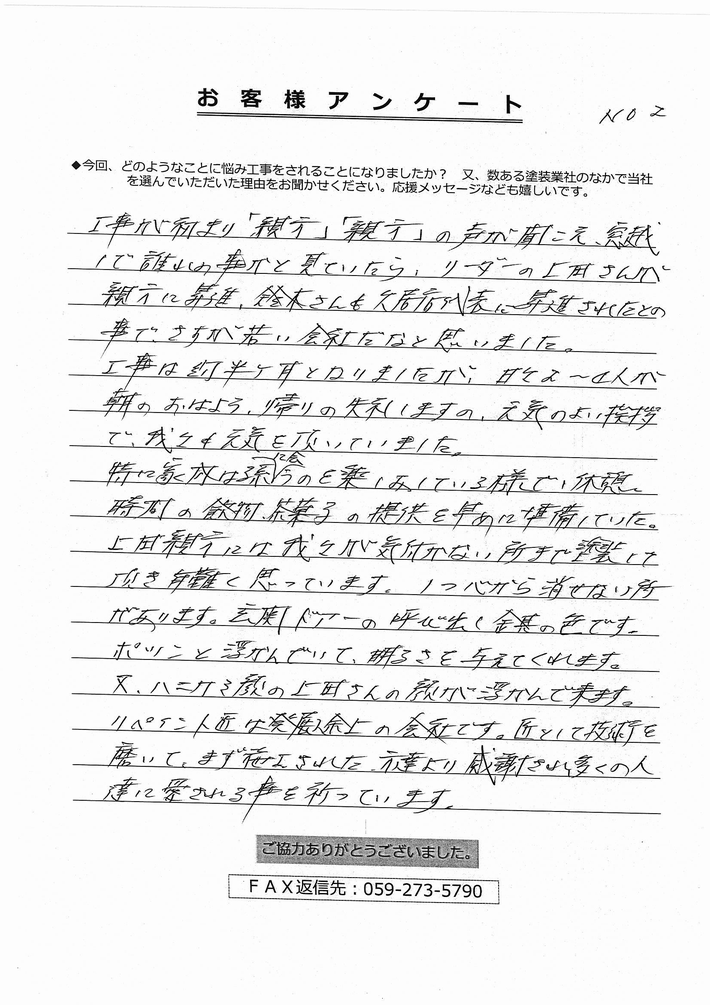 お客様アンケート
NO 2
◆今回、どのようなことに悩み工事をされることになりましたか？ 又、数ある塗装業社のなかで当社
を選んでいただいた理由をお聞かせください。応援メッセージなども嬉しいです。
工事が初まり「親方」「親方」の声が聞こえ、窓越
しで誰れの事かと見ていたら、リーダーの上田さんが
親方に昇進、鈴木さんも久居店代表に昇進されたとの
事で、さすが若い会社だなと思いました。
工事は約半ケ月となりましたが、日々2〜4人が
朝のおはよう、帰りの失礼しますの、元気のよい挨拶
で、我々も元気を頂いていました。
特に家族は孫に会うのを楽しみしている様でい休頭、
時刻の飲物、茶菓子の提供を早めに準備していた。
上田親方には我々が気付かない所まで塗装して
頂き有難く思っています。1つ心から消せない所
があります。玄関ドアーの呼び出し金具の色です。
ポツンと浮かんでいて、明るさを与えてくれます。
又、ハニカむ顔の上田さんの顔が浮かんで来ます。
リペイント匠は発展途上の会社です。匠として技術を
磨いて、まず施工された方達より感謝され多くの人
達に愛される事を祈っています。
ご協力ありがとうございました。
FAX返信先：059-273-5790